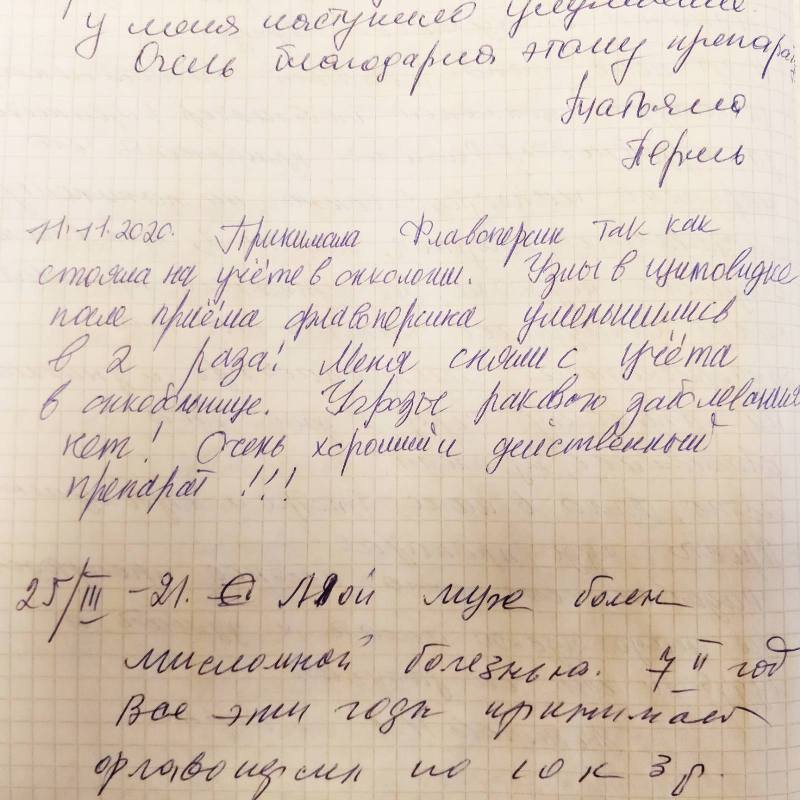 у меня наступило улучшение.
Очень благодарна этому препарату
Татьяна
Пермь
11.11.2020. Принимала Флавоперсин так как
стояла на учёте в онкологии. Узлы в щитовидке
после приёма флавоперсина уменьшились
в 2 раза! Меня сняли с учёта
в онкобольнице. Угрозы ракового заболевания
нет! Очень хороший и действенный
препарат!!!
25/III -21. Мой муж болен
мисломной болезнью. 7й год
Все эти годы принимает
флавоперсин по 10 к 3 р.